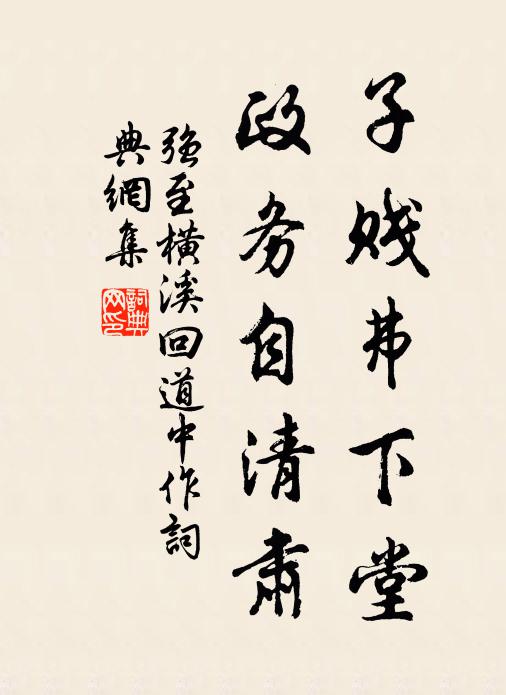 子贱弗下堂
政务自清肃
强至橫溪回道中作詞
典網集
詞典网印